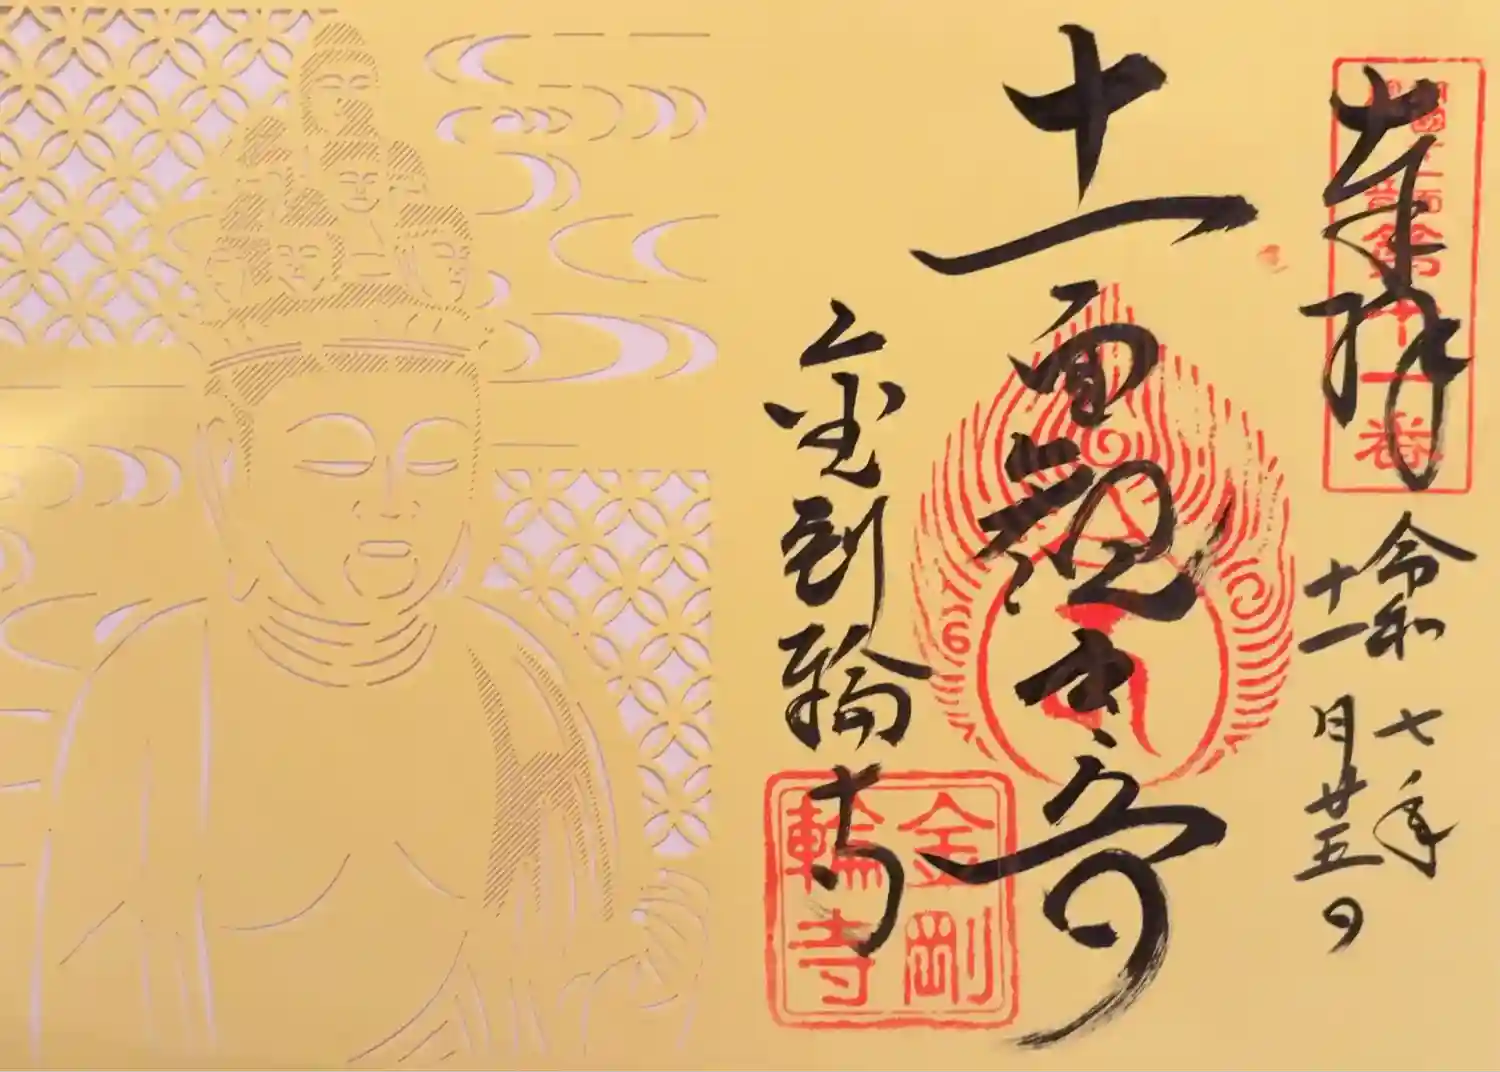 奉拝
第十一番
令和七年
十一月廿五日
十一面観世音
金剛輪寺
金剛
輪寺